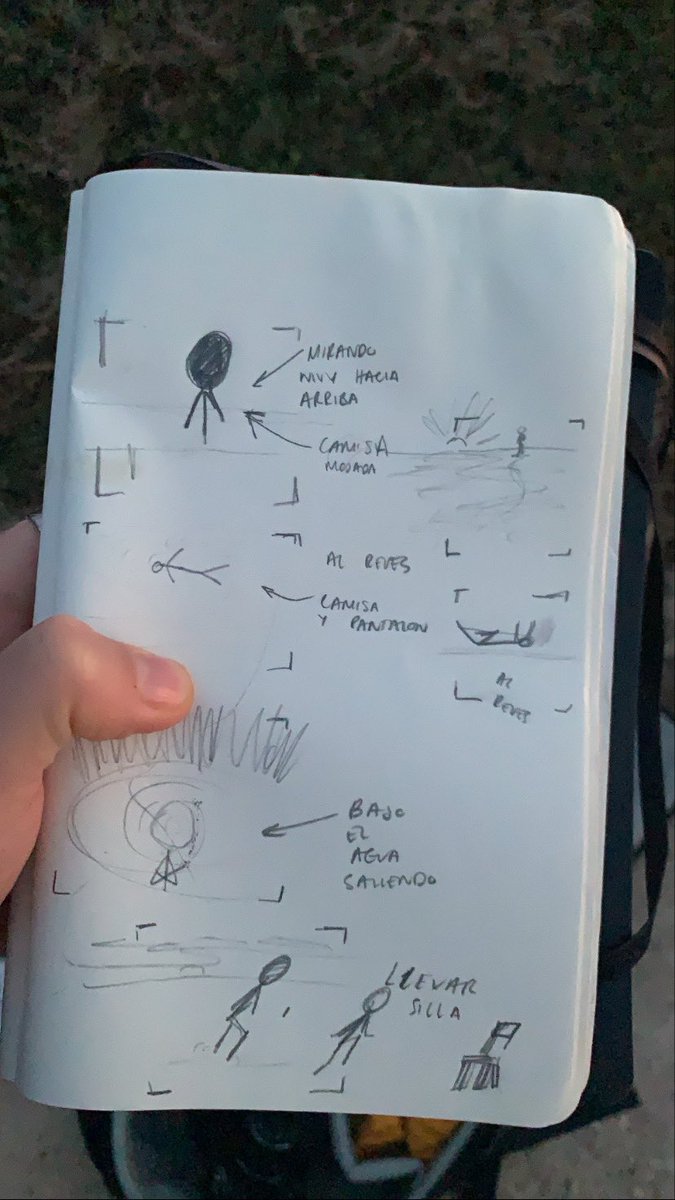 MIRANDO
MUY HACIA
ARRIBA
CAMISA
MOJADA
AL REVES
CAMISA
Y PANTALON
AL
REVES
BAJO
EL
AGUA
SALIENDO
LLEVAR
SILLA